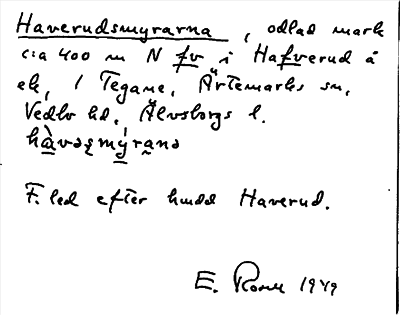 Haverudsmyrarna, odlad mark
c:a 400 m N fv i Hafverud å
ek, 1 Tegane, Ärtemarks sn,
Vedbo hd, Älvsborgs l.
hàvəʂmýrana
F. led efter Haverud.
E. 1949